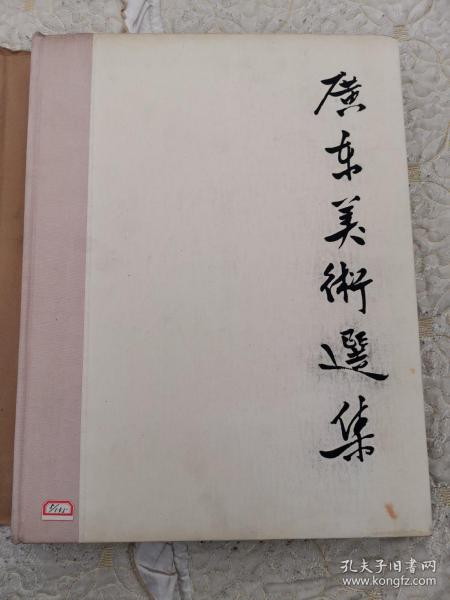 廣东美術選集
孔夫子旧书网
www.kongfz.com